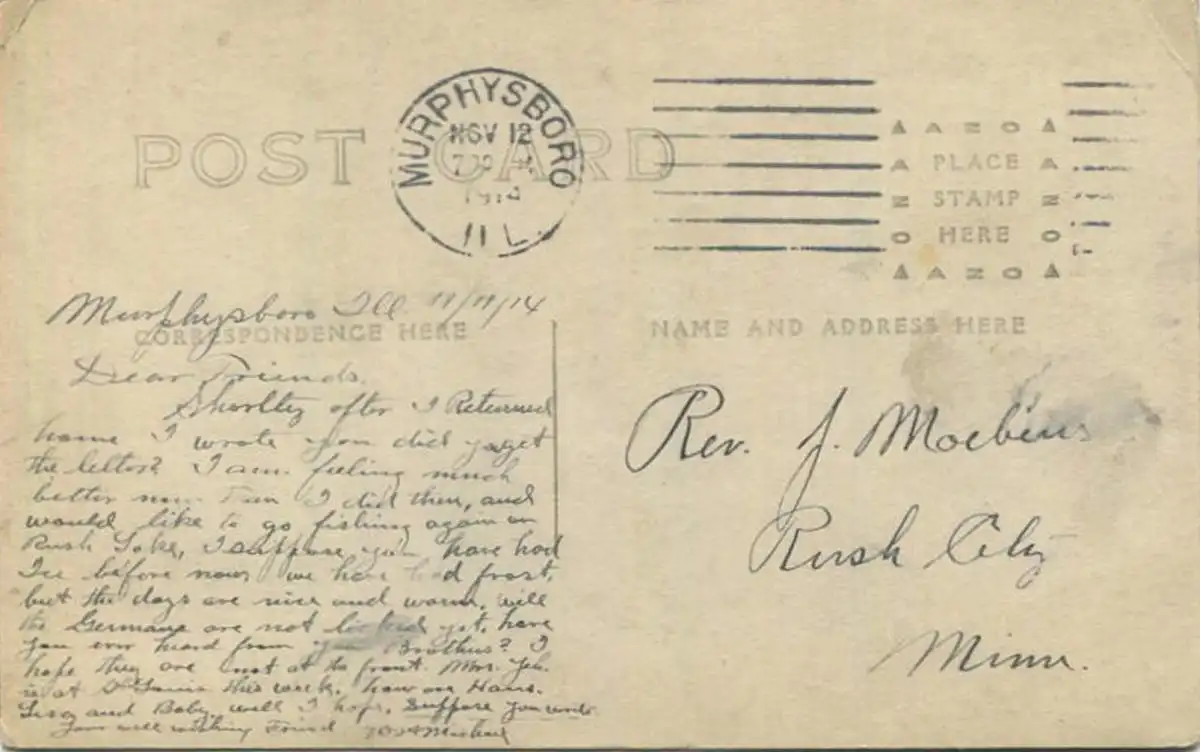 POST CARD
MURPHYSBORO
NOV 12
1914
ILL.
AZO
PLACE
STAMP
HERE
AZO
Murphysboro Ill 11/11/14
CORRESPONDENCE HERE
NAME AND ADDRESS HERE
Dear Friends.
Shortly after I Returned
home I wrote you did you get
the letter? I am feeling much
better now Than I did then, and
would like to go fishing again on
Rush Lake, I suppose you have had
Ice before now, we have had frost,
but the days are nice and warm. well
the Germans are not licked yet, have
you ever heard from your Brothers? I
hope they are not at the front. Mrs.
is at St Louis this week. how are Hans.
and Baby. well I hope. Suppose you write
Your well wishing Friend
Rev. J. Moebius
Rush City
Minn.